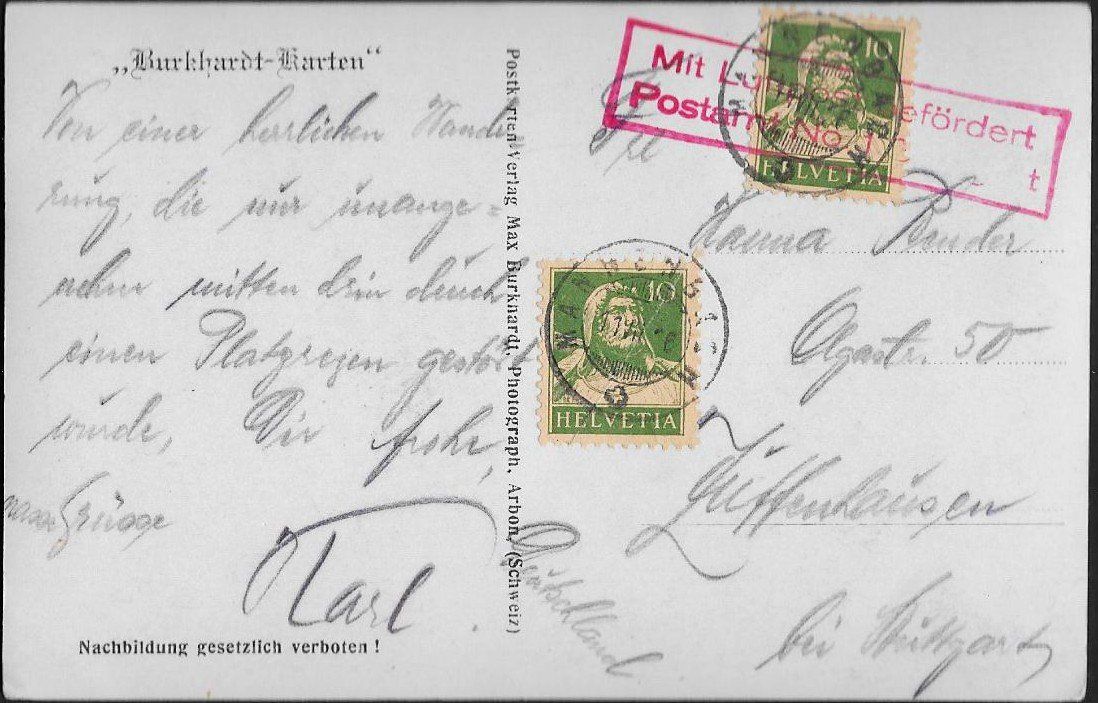 „Burkhardt-Karten“
Von einer herrlichen Wande-
rung, die nur unange-
nehm mitten drin durch
einen Platzregen gestört
wurde, Dir frohe,
nasse Grüsse
Karl
Nachbildung gesetzlich verboten !
Postkarten Verlag Max Burkhardt, Photograph, Arbon, (Schweiz)
Mit Lu efördert
Postamt No t
10
HELVETIA
10
HELVETIA
Frl
Hanna
Olgastr. 50
Zuffenhausen
bei Stuttgart
Deutschland